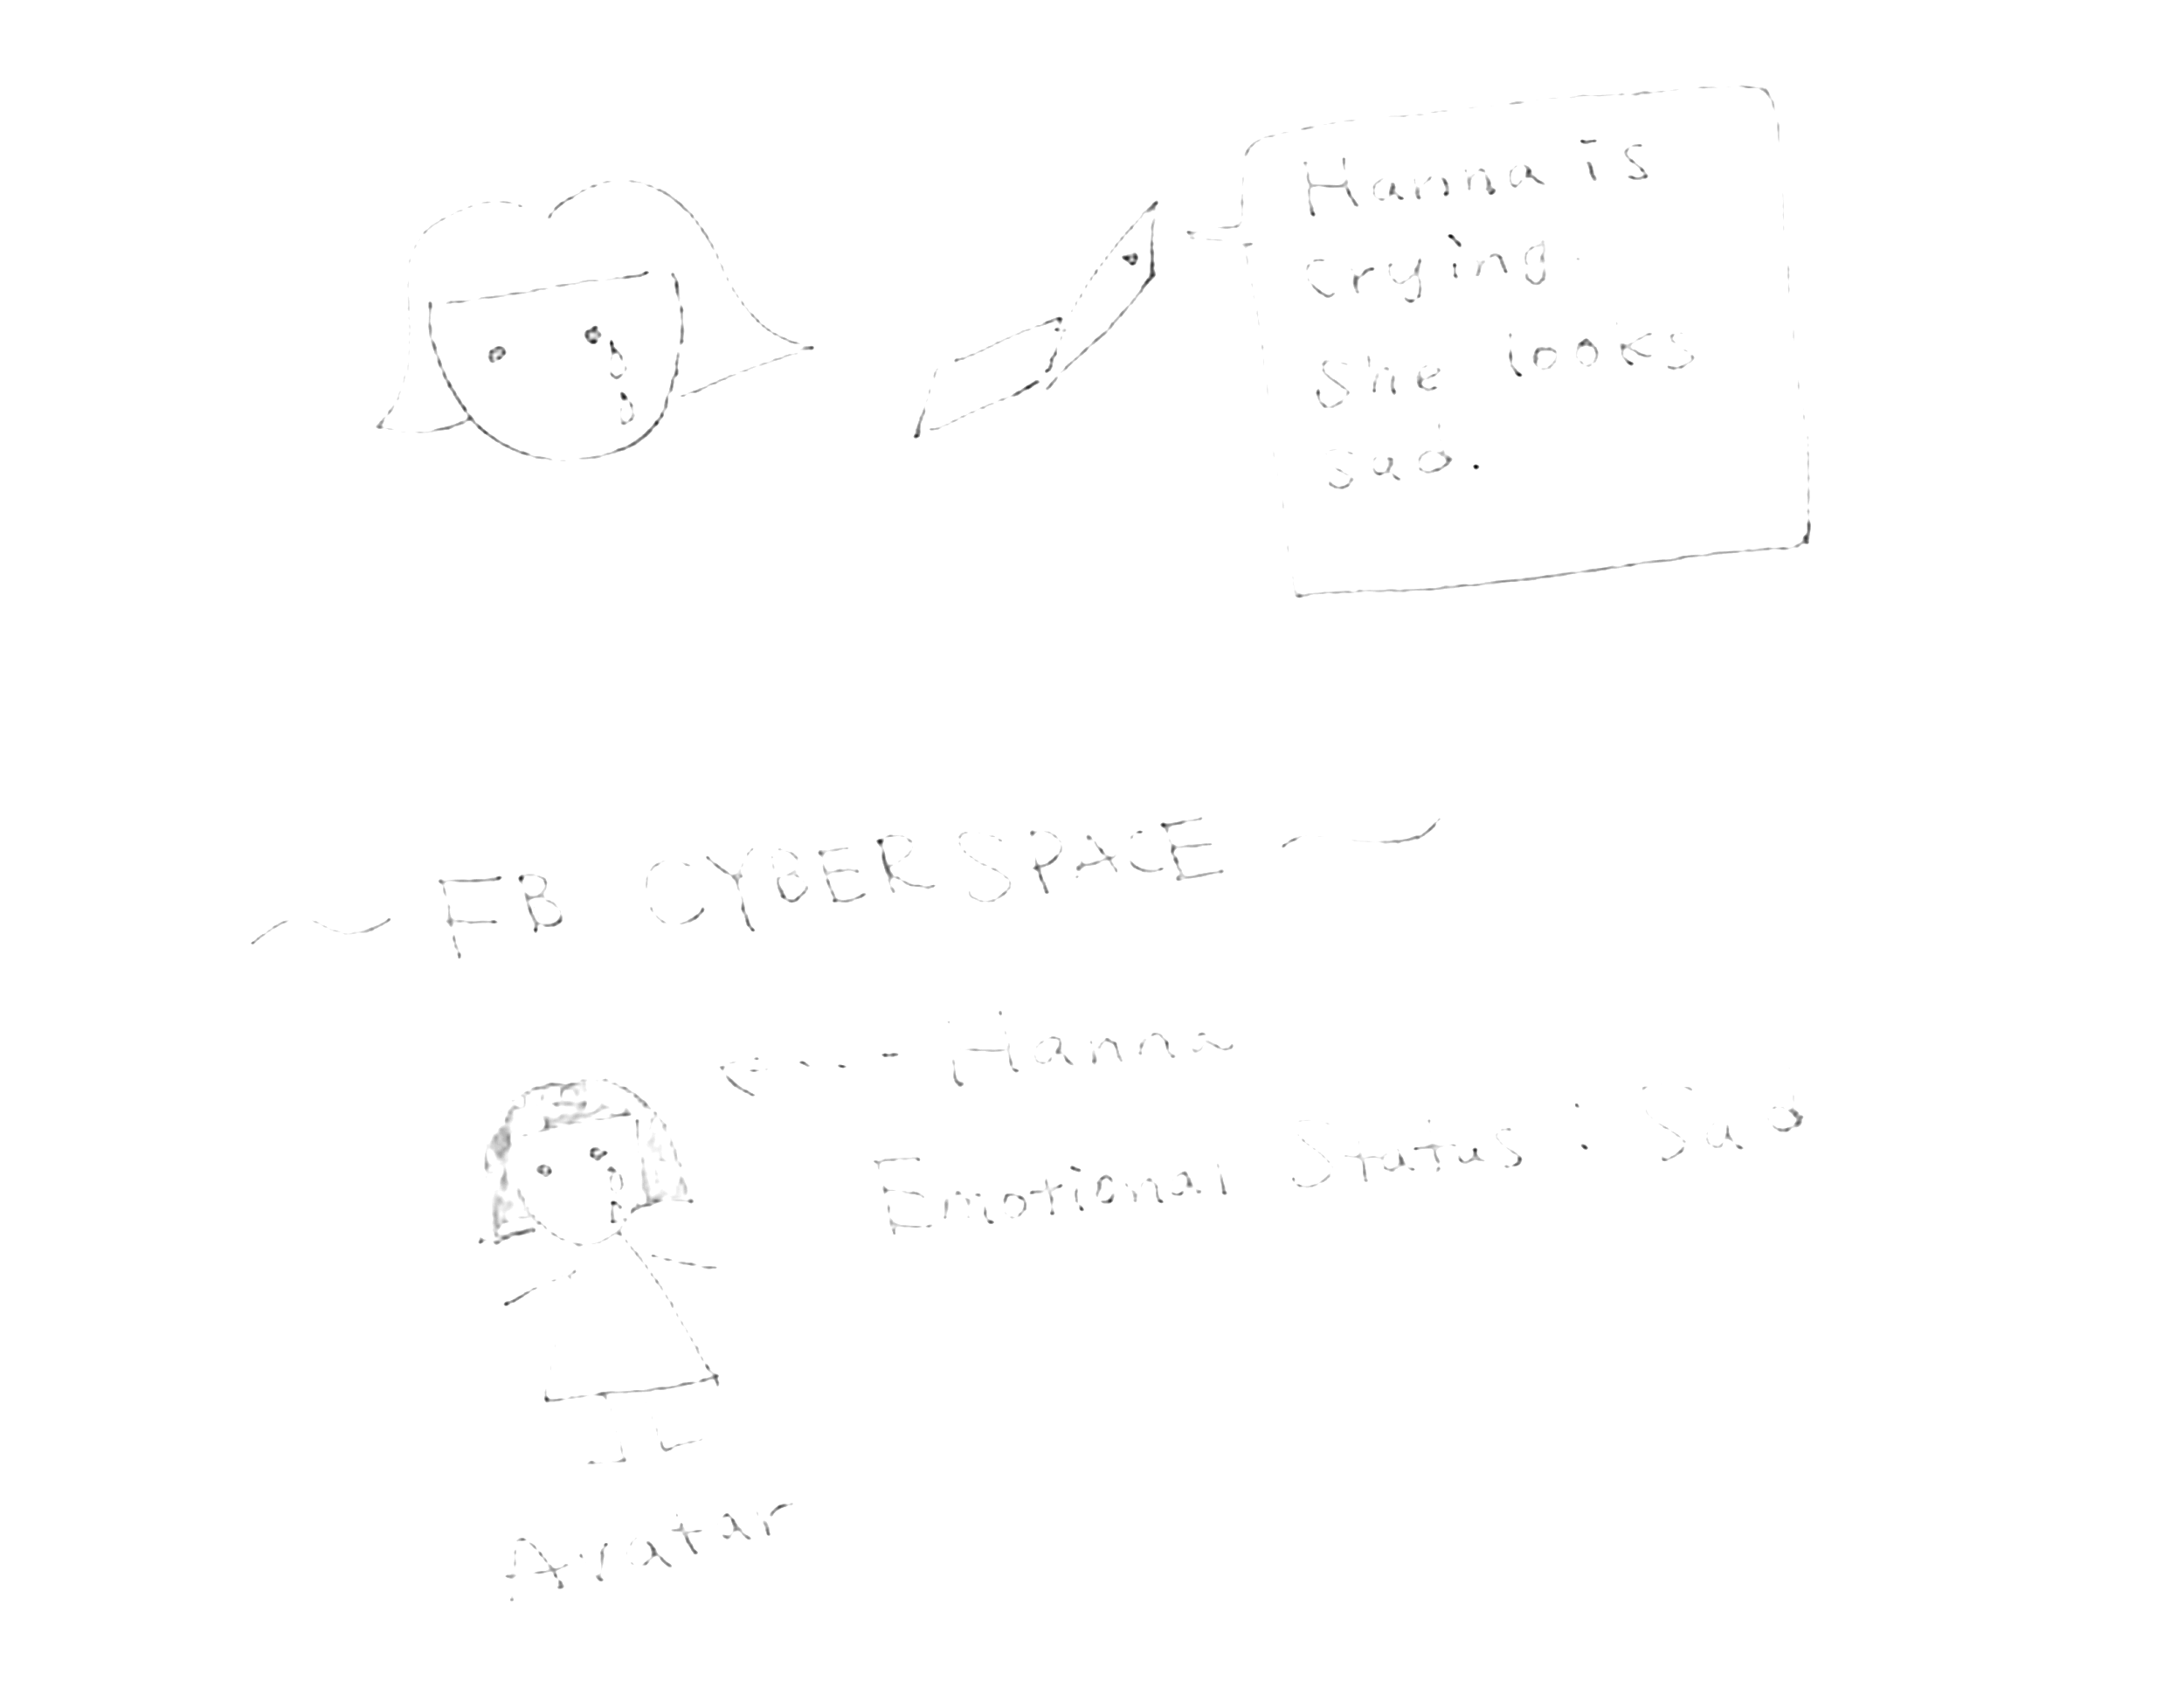 Hanna is
crying.
She looks
sad.
~ FB CYBERSPACE ~
Hanna
Emotional Status : Sad
Avatar